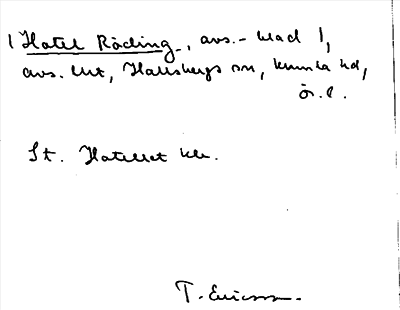 1 Hotel Röding, avs.- blad 1,
avs. lht, Hallsbergs sn, Kumla hd,
ör. l.
St. Hotellet kv.
T. Ericsson.